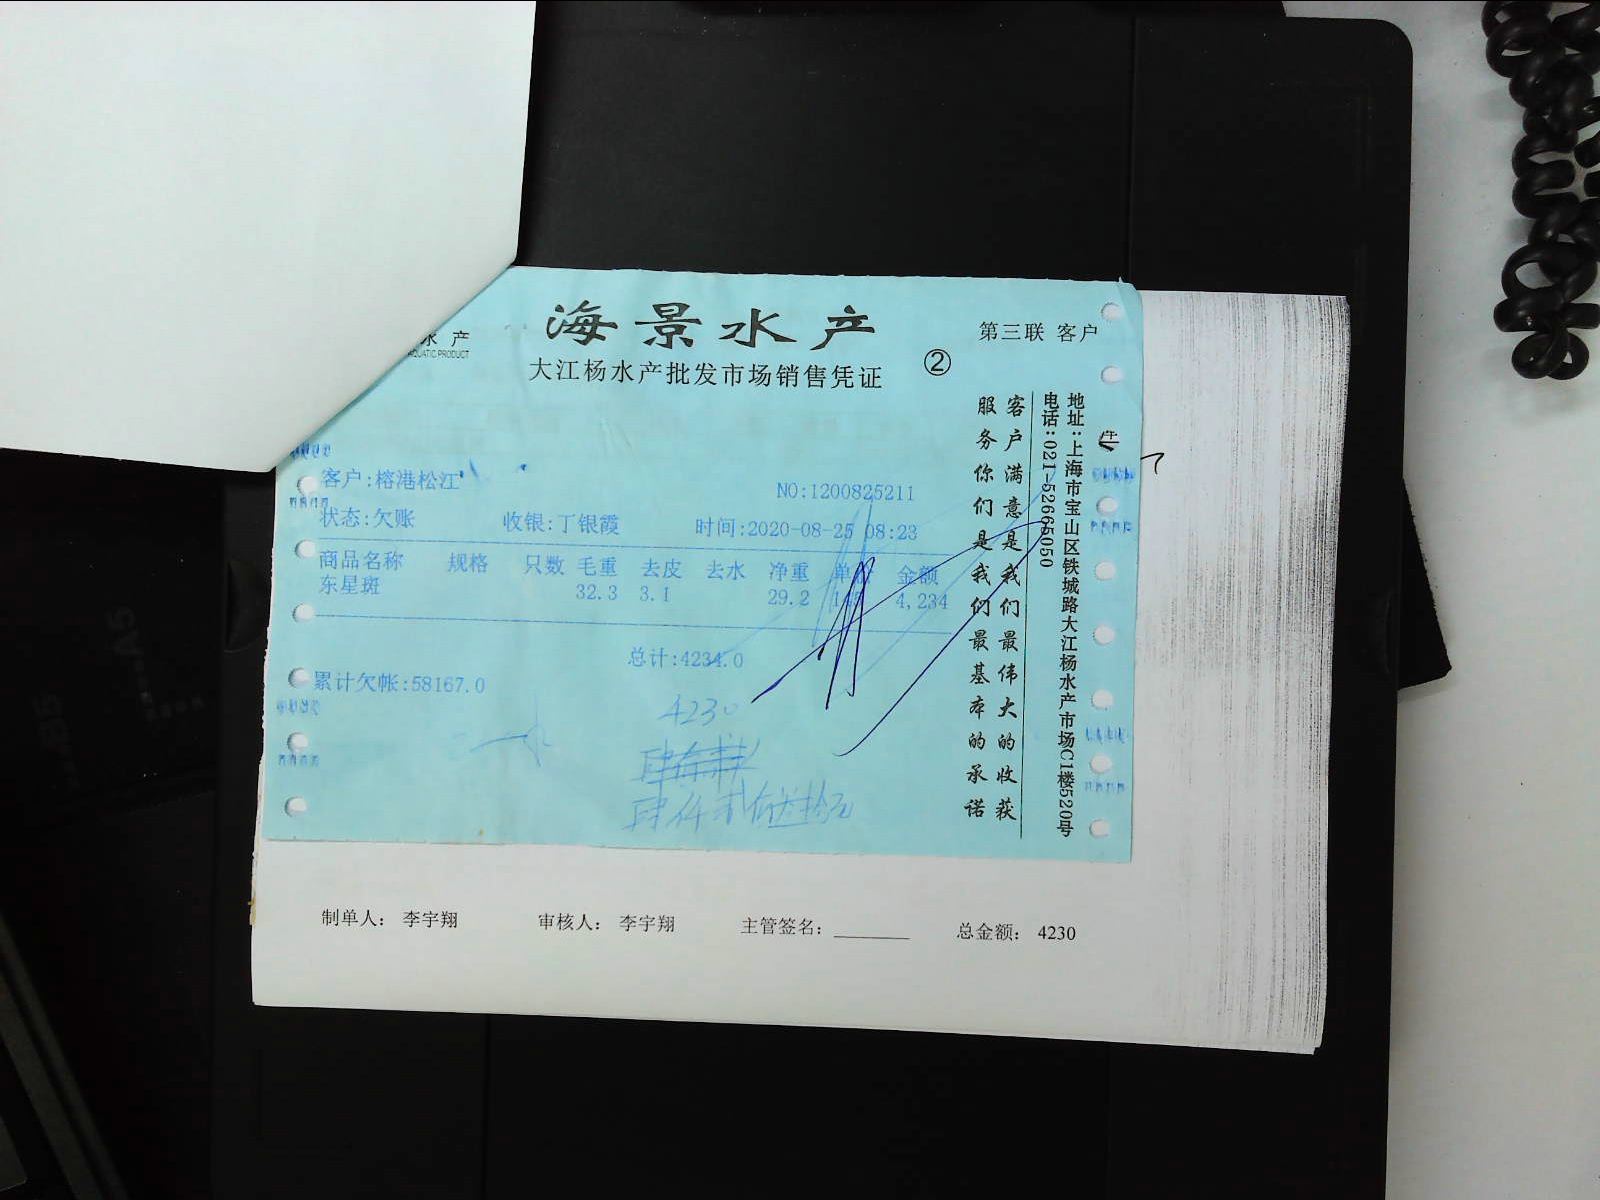 水产
AQUATIC PRODUCT
海景水产
大江杨水产批发市场销售凭证
②
第三联 客户
客户:榕港松江
NO:1200825211
状态:欠账 收银:丁银霞 时间:2020-08-25 08:23
商品名称 规格 只数 毛重 去皮 去水 净重 单价 金额
东星斑 32.3 3.1 29.2 145 4,234
总计:4234.0
累计欠帐:58167.0
4230
肆仟贰佰叁拾元
客户满意是我们最伟大的收获
服务你们是我们最基本的承诺
地址:上海市宝山区铁城路大江杨水产市场C1楼520号
电话:021-52665050
制单人: 李宇翔 审核人: 李宇翔 主管签名: 总金额: 4230